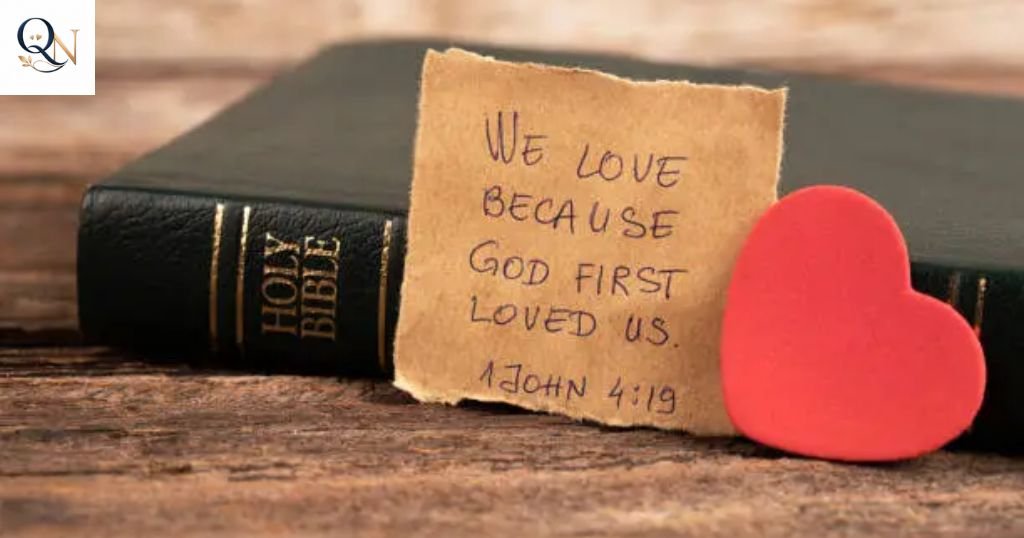 QN
HOLY
BIBLE
WE LOVE
BECAUSE
GOD FIRST
LOVED US.
1 JOHN 4:19